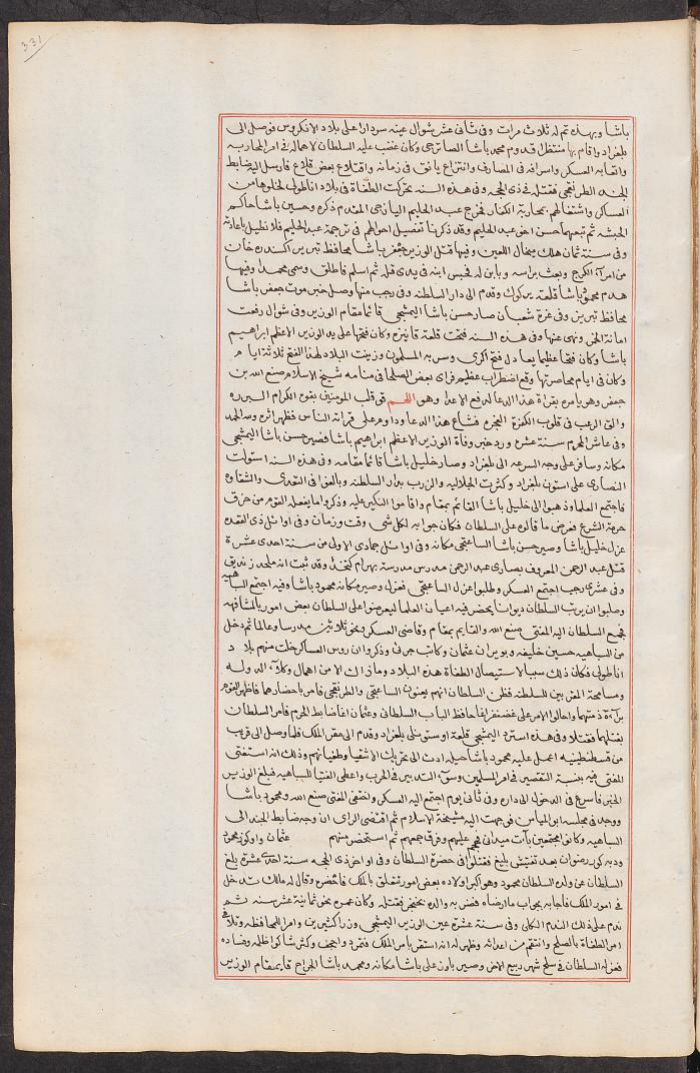 331
باشا وبهذه تم له ثلاث مرات وفى ثانى عشر شوال عينه سردارا على بلاد الانكروس فوصل الى
بلغراد واقام بها منتظرا قدوم محمد باشا الصاترجى وكان غضب عليه السلطان لاهماله فى امر المحاربه
واتعابه العسكر واسرافه فى المصارف وانتزاع يانق فى زمانه واقتلاع بعض قلاع فارسل اليه ضابط
الجند الطرنقجى فقتله فى ذى الحجه وفى هذه السنه تحركت الطغاة فى بلاد اناطولى لخلوها من
العساكر واشتغالهم بمحاربة الكفار فخرج عبد الحليم اليازجى المقدم ذكره وحسين باشا حاكم
الحبشه ثم تبعهما حسن اخو عبد الحليم وقد ذكرنا تفصيل احوالهم فى ترجمة عبد الحليم فلا نطيل باعادته
وفى سنة ثمان هلك ميخال اللعين وفيها قتل الوزير جعفر باشا محافظ تبريز اكسندره خان
من امرآء الكرج وبعث براسه وبابن له فحبس ابنه فى يدى قله ثم اسلم فاطلق وسمى محمدا وفيها
هدم محمود باشا قلعة يركوك وقدم الى دار السلطنه وفى رجب منها وصل خبر موت جعفر باشا
محافظ تبريز وفى غرة شعبان صار حسن باشا اليمشجى قائما مقام الوزير وفى شوال رفعت
امانة الخمر ونهى عنها وفى هذه السنه فتحت قلعة قانيزه وكان فتحها على يد الوزير الاعظم ابراهيم
باشا وكان فتحا عظيما يعادل فتح اكرى وسر به المسلمون وزينت البلاد لهذا الفتح ثلاثة ايام
وكان فى ايام محاصرتها وقع اضطراب عظيم فراى بعض الصلحا فى منامه شيخ الاسلام صنع الله بن
جعفر وهو يامره بقراة هذا الدعا لدفع الاعدا وهو اللهم قو قلب المومنين بقوة الكرام البرره
والق الرعب فى قلوب الكفرة الفجره فشاع هذا الدعا وداوم على قراته الناس فظهر اثره ولله الحمد
وفى عاشر المحرم سنة عشره ورد خبر وفاة الوزير الاعظم ابراهيم باشا فصير حسن باشا اليمشجى
مكانه وسافر على وجه السرعه الى بلغراد وصار خليل باشا قائما مقامه وفى هذه السنه استولت
النصارى على استون بلغراد وكثرت الجلاليه والزرب بدار السلطنه وبالغوا فى التعدى والشقاوه
فاجتمع العلما وذهبوا الى خليل باشا القائم بمقام واقاموا النكير عليه وذكروا ما يفعله القوم من خرق
حرمة الشرع فعرض ما قالوه على السلطان فكان جوابه لكل شى وقت وزمان وفى اوائل ذى القعده
عزل خليل باشا وصير حسن باشا الساعتجى مكانه وفى اوائل جمادى الاولى من سنة احدى عشرة
قتل عبد الرحمن المعروف بصارى عبد الرحمن مدرس مدرسة بهرام كتخدا وقد ثبت انه ملحد زنديق
وفى عشرى رجب اجتمع العسكر وطلبوا عزل الساعتجى فعزل وصير مكانه محمود باشا وفيه اجتمع السباهيه
وطلبوا ان يرتب السلطان ديوانا يحضر فيه اعيان العلما ليعرضوا على السلطان بعض امور بالمشافهه
فجمع السلطان اليه المفتى صنع الله والقايم بمقام وقاضى العسكر ونحو ثلاثين مدرسا وعالما ثم دخل
من السباهيه حسين خليفه وبويراز عثمان وكاتب جزمى وذكروا ان روس العساكر خلت منهم بلاد
اناطولى فكان ذلك سببا لاستيصال الطغاة هذه البلاد وما ذاك الا من اهمال وكلآء الدوله
ومسامحة المقربين للسلطنه فظن السلطان انهم يعنون الساعتجى والطرنقجى فامر باحضارهما فاظهر القوم
برآءة ذمتهما واحالوا الامر على غضنفر اغا حافظ الباب السلطانى وعثمان اغا ضابط الحرم فامر السلطان
بقتلهما فقتلا وفى هذه استرد اليمشجى قلعة اوستونى بلغراد وقدم الى مقر الملك فلما وصل الى قريب
من قسطنطينيه اعمل عليه محمود باشا حيله ادت الى تحريك الاشقيا وطغيانهم وذلك انه استفتى
المفتى فيه بنسبة التقصير فى امر المسلمين وسوء التدبير فى الحرب واعطى الفتيا للسباهيه فبلغ الوزير
الخبر فاسرع فى الدخول الى داره وفى ثانى يوم اجتمع اليه العسكر واختفى المفتى صنع الله ومحمود باشا
ووجد فى مجلسه ابو الميامن فوجهت اليه مشيخة الاسلام ثم اقتضى الراى ان وجه ضابط الجند الى
السباهيه وكانوا مجتمعين بآت ميدانى فهجم عليهم وفرق جمعهم ثم استحضر منهم عثمان واوكوز محمود
ودبه كوز رضوان بعد تفتيش بليغ فقتلوا فى حضرة السلطان وفى اواخر ذى الحجه سنة احد عشرة بلغ
السلطان عن ولده السلطان محمود وهو اكبر اولاده بعض امور تتعلق بالملك فاحضره وقال له مالك تدخل
فى امور الملك فاجابه بجواب ما ارضاه فضربه والده بخنجر فقتله وكان عمره نحو ثمانية عشر سنه ثم
ندم على ذلك الندم الكلى وفى سنة عشرة عين الوزير اليمشجى وزرا كثيرين وامر للمحافظه وتلافى
امر الطغاة بالصلح وانتقم من اعدائه وظهر له انه استقر بامر الملك فتمرد واجحف وكثر شاكوا ظلمه وفساده
فعزله السلطان فى سلخ شهر ربيع الاخر وصير ياوز على باشا مكانه ومحمد باشا الجراح قايمقام الوزير